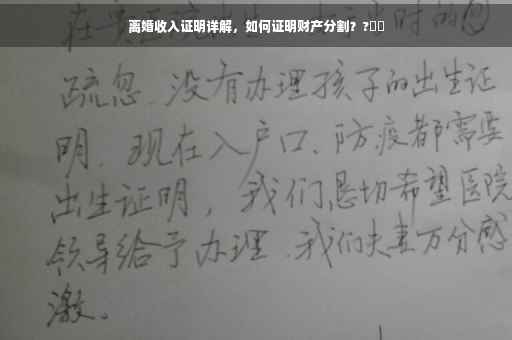 离婚收入证明详解，如何证明财产分割？?
疏忽.没有办理孩子的出生证
明.现在入户口、防疫都需要
出生证明，我们恳切希望医院
领导给予办理.我们夫妻万分感
激。